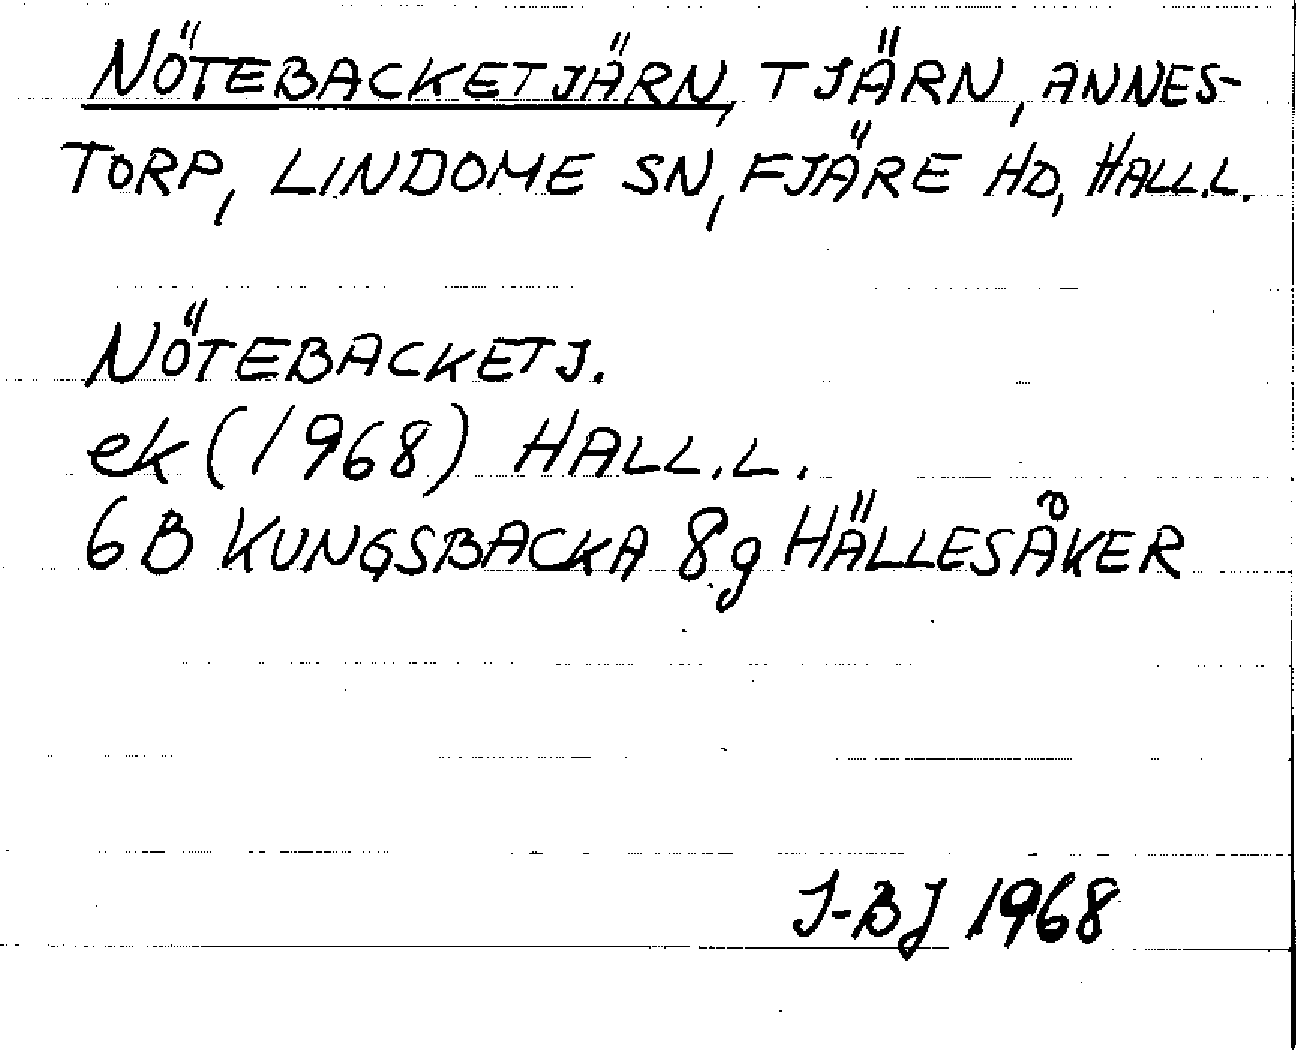 NÖTEBACKETJÄRN, TJÄRN, ANNES-
TORP, LINDOME SN, FJÄRE HD, HALL.L.
NÖTEBACKETJ.
ek (1968) HALL.L.
6B KUNGSBACKA 8g HÄLLESÅKER
J-BJ 1968